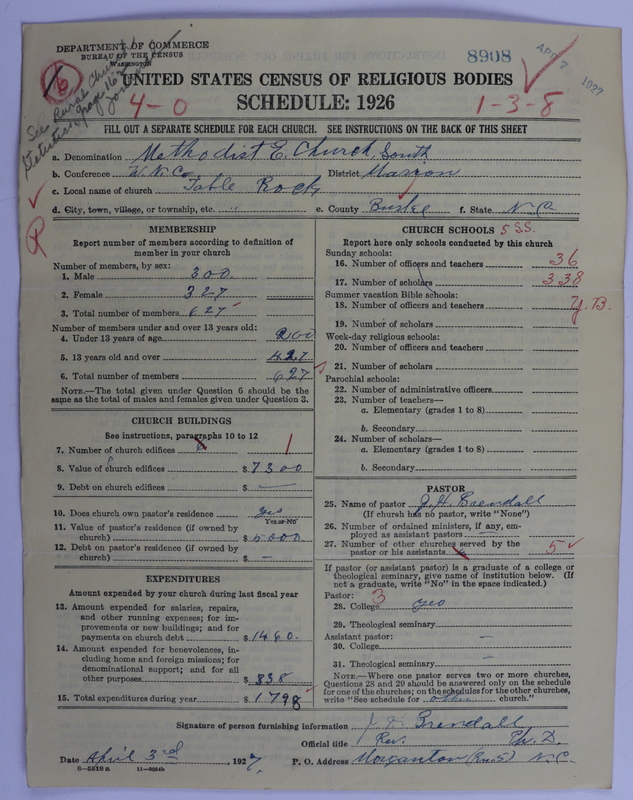 DEPARTMENT OF COMMERCE
BUREAU OF THE CENSUS
WASHINGTON
8908
APR 7 1927
See Rural Church Statistics, page 162
UNITED STATES CENSUS OF RELIGIOUS BODIES
4-0
SCHEDULE: 1926
1-3-8
FILL OUT A SEPARATE SCHEDULE FOR EACH CHURCH. SEE INSTRUCTIONS ON THE BACK OF THIS SHEET
a. Denomination Methodist E. Church, South
b. Conference W. N. C. District Marion
c. Local name of church Table Rock
d. City, town, village, or township, etc. e. County Burke f. State N. C.
R
MEMBERSHIP
Report number of members according to definition of
member in your church
Number of members, by sex:
1. Male 300
2. Female 327
3. Total number of members 627
Number of members under and over 13 years old:
4. Under 13 years of age 200
5. 13 years old and over 427
6. Total number of members 627
NOTE.—The total given under Question 6 should be the
same as the total of males and females given under Question 3.
CHURCH BUILDINGS
See instructions, paragraphs 10 to 12
7. Number of church edifices 1
8. Value of church edifices $ 7300
9. Debt on church edifices $ —
10. Does church own pastor's residence? yes
Yes or No
11. Value of pastor's residence (if owned by
church) $ 5000
12. Debt on pastor's residence (if owned by
church) $ —
EXPENDITURES
Amount expended by your church during last fiscal year
13. Amount expended for salaries, repairs,
and other running expenses; for im-
provements or new buildings; and for
payments on church debt $ 1460.
14. Amount expended for benevolences, in-
cluding home and foreign missions; for
denominational support; and for all
other purposes $ 338
15. Total expenditures during year $ 1798
CHURCH SCHOOLS 5 S.S.
Report here only schools conducted by this church
Sunday schools:
16. Number of officers and teachers 36
17. Number of scholars 338
Summer vacation Bible schools:
18. Number of officers and teachers Y.B.
19. Number of scholars
Week-day religious schools:
20. Number of officers and teachers
21. Number of scholars
Parochial schools:
22. Number of administrative officers
23. Number of teachers—
a. Elementary (grades 1 to 8)
b. Secondary
24. Number of scholars—
a. Elementary (grades 1 to 8)
b. Secondary
PASTOR
25. Name of pastor J. H. Brendall
(If church has no pastor, write "None")
26. Number of ordained ministers, if any, em-
ployed as assistant pastors —
27. Number of other churches served by the
pastor or his assistants 5
If pastor (or assistant pastor) is a graduate of a college or
theological seminary, give name of institution below. (If
not a graduate, write "No" in the space indicated.)
Pastor: 3
28. College yes
29. Theological seminary
Assistant pastor: —
30. College
31. Theological seminary —
NOTE.—Where one pastor serves two or more churches,
Questions 28 and 29 should be answered only on the schedule
for one of the churches; on the schedules for the other churches,
write "See schedule for other church."
Signature of person furnishing information J. H. Brendall
Official title Rev. Ph. D.
Date April 3rd, 1927. P. O. Address Morganton (Rn. 5) N. C.
6—5518 a 11—9054b